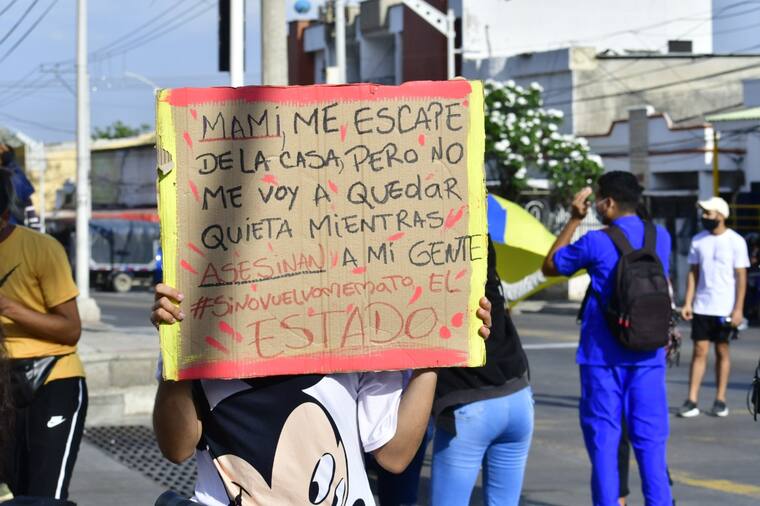 MAMI, ME ESCAPE
DE LA CASA, PERO NO
ME VOY A QUEDAR
QUIETA MIENTRAS
ASESINAN A MI GENTE
#SiNOVUELVOMEMATO EL
ESTADO